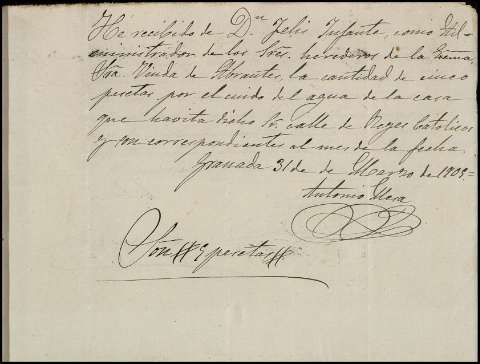 He recibido de Dn Felix Infante, como Ad-
ministrador de los Sres. herederos de la Exema,
Sra. Viuda de Abrantes, la cantidad de cinco
pesetas por el cuido del agua de la casa
que havita dicho Sr. calle de Reyes Catolicos
y son correspondientes al mes de la fecha.
Granada 31 de Marzo de 1909.=
Antonio Mesa
Son ## 5 pesetas ##